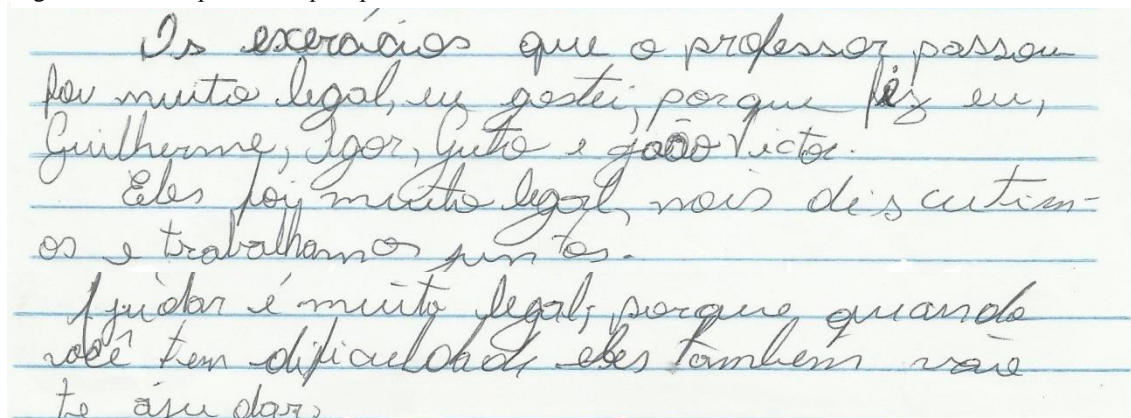 Os exercícios que o professor passou
foi muito legal, eu gostei, porque fiz eu,
Guilherme, Igor, Guto e João Victor.
Eles foi muito legal, nois discutim-
os e trabalhamos juntos.
Ajudar é muito legal, porque quando
você tem dificuldade eles tambem vão
te ajudar.